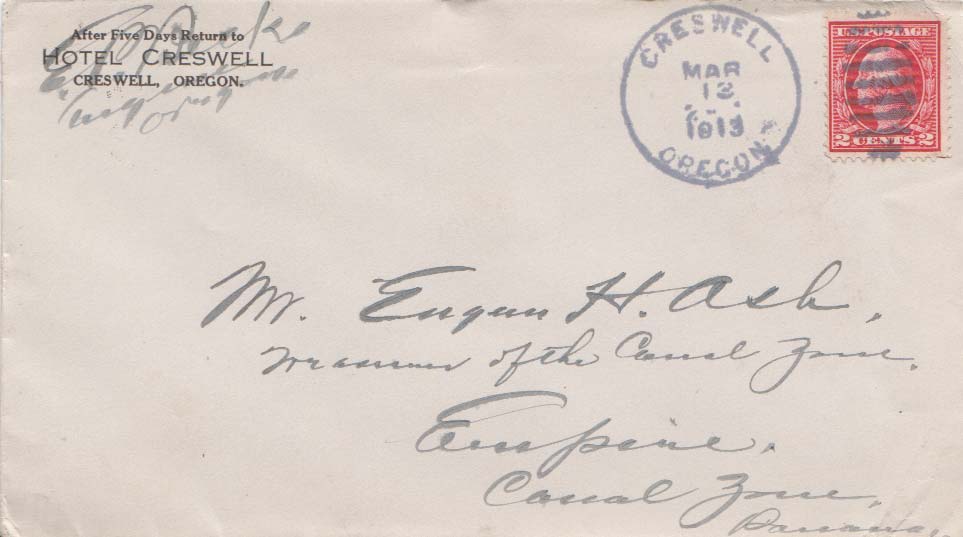 After Five Days Return to
HOTEL CRESWELL
CRESWELL, OREGON.
CRESWELL
MAR
12
1913
OREGON
U.S. POSTAGE
2 CENTS 2
Mr. Eugene H. Ash,
Treasurer of the Canal Zone,
Empire,
Canal Zone,
Panama.